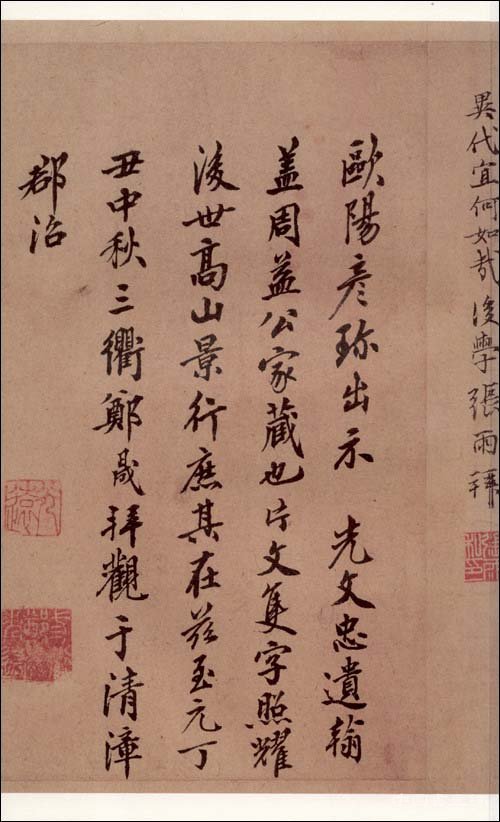 異代宜何如哉後學張雨拜
歐陽彦珎出示　先文忠遺翰
盖周益公家藏也片文隻字照耀
後世高山景行庶其在兹至元丁
丑中秋三衢鄭晟拜觀于清漳
郡治